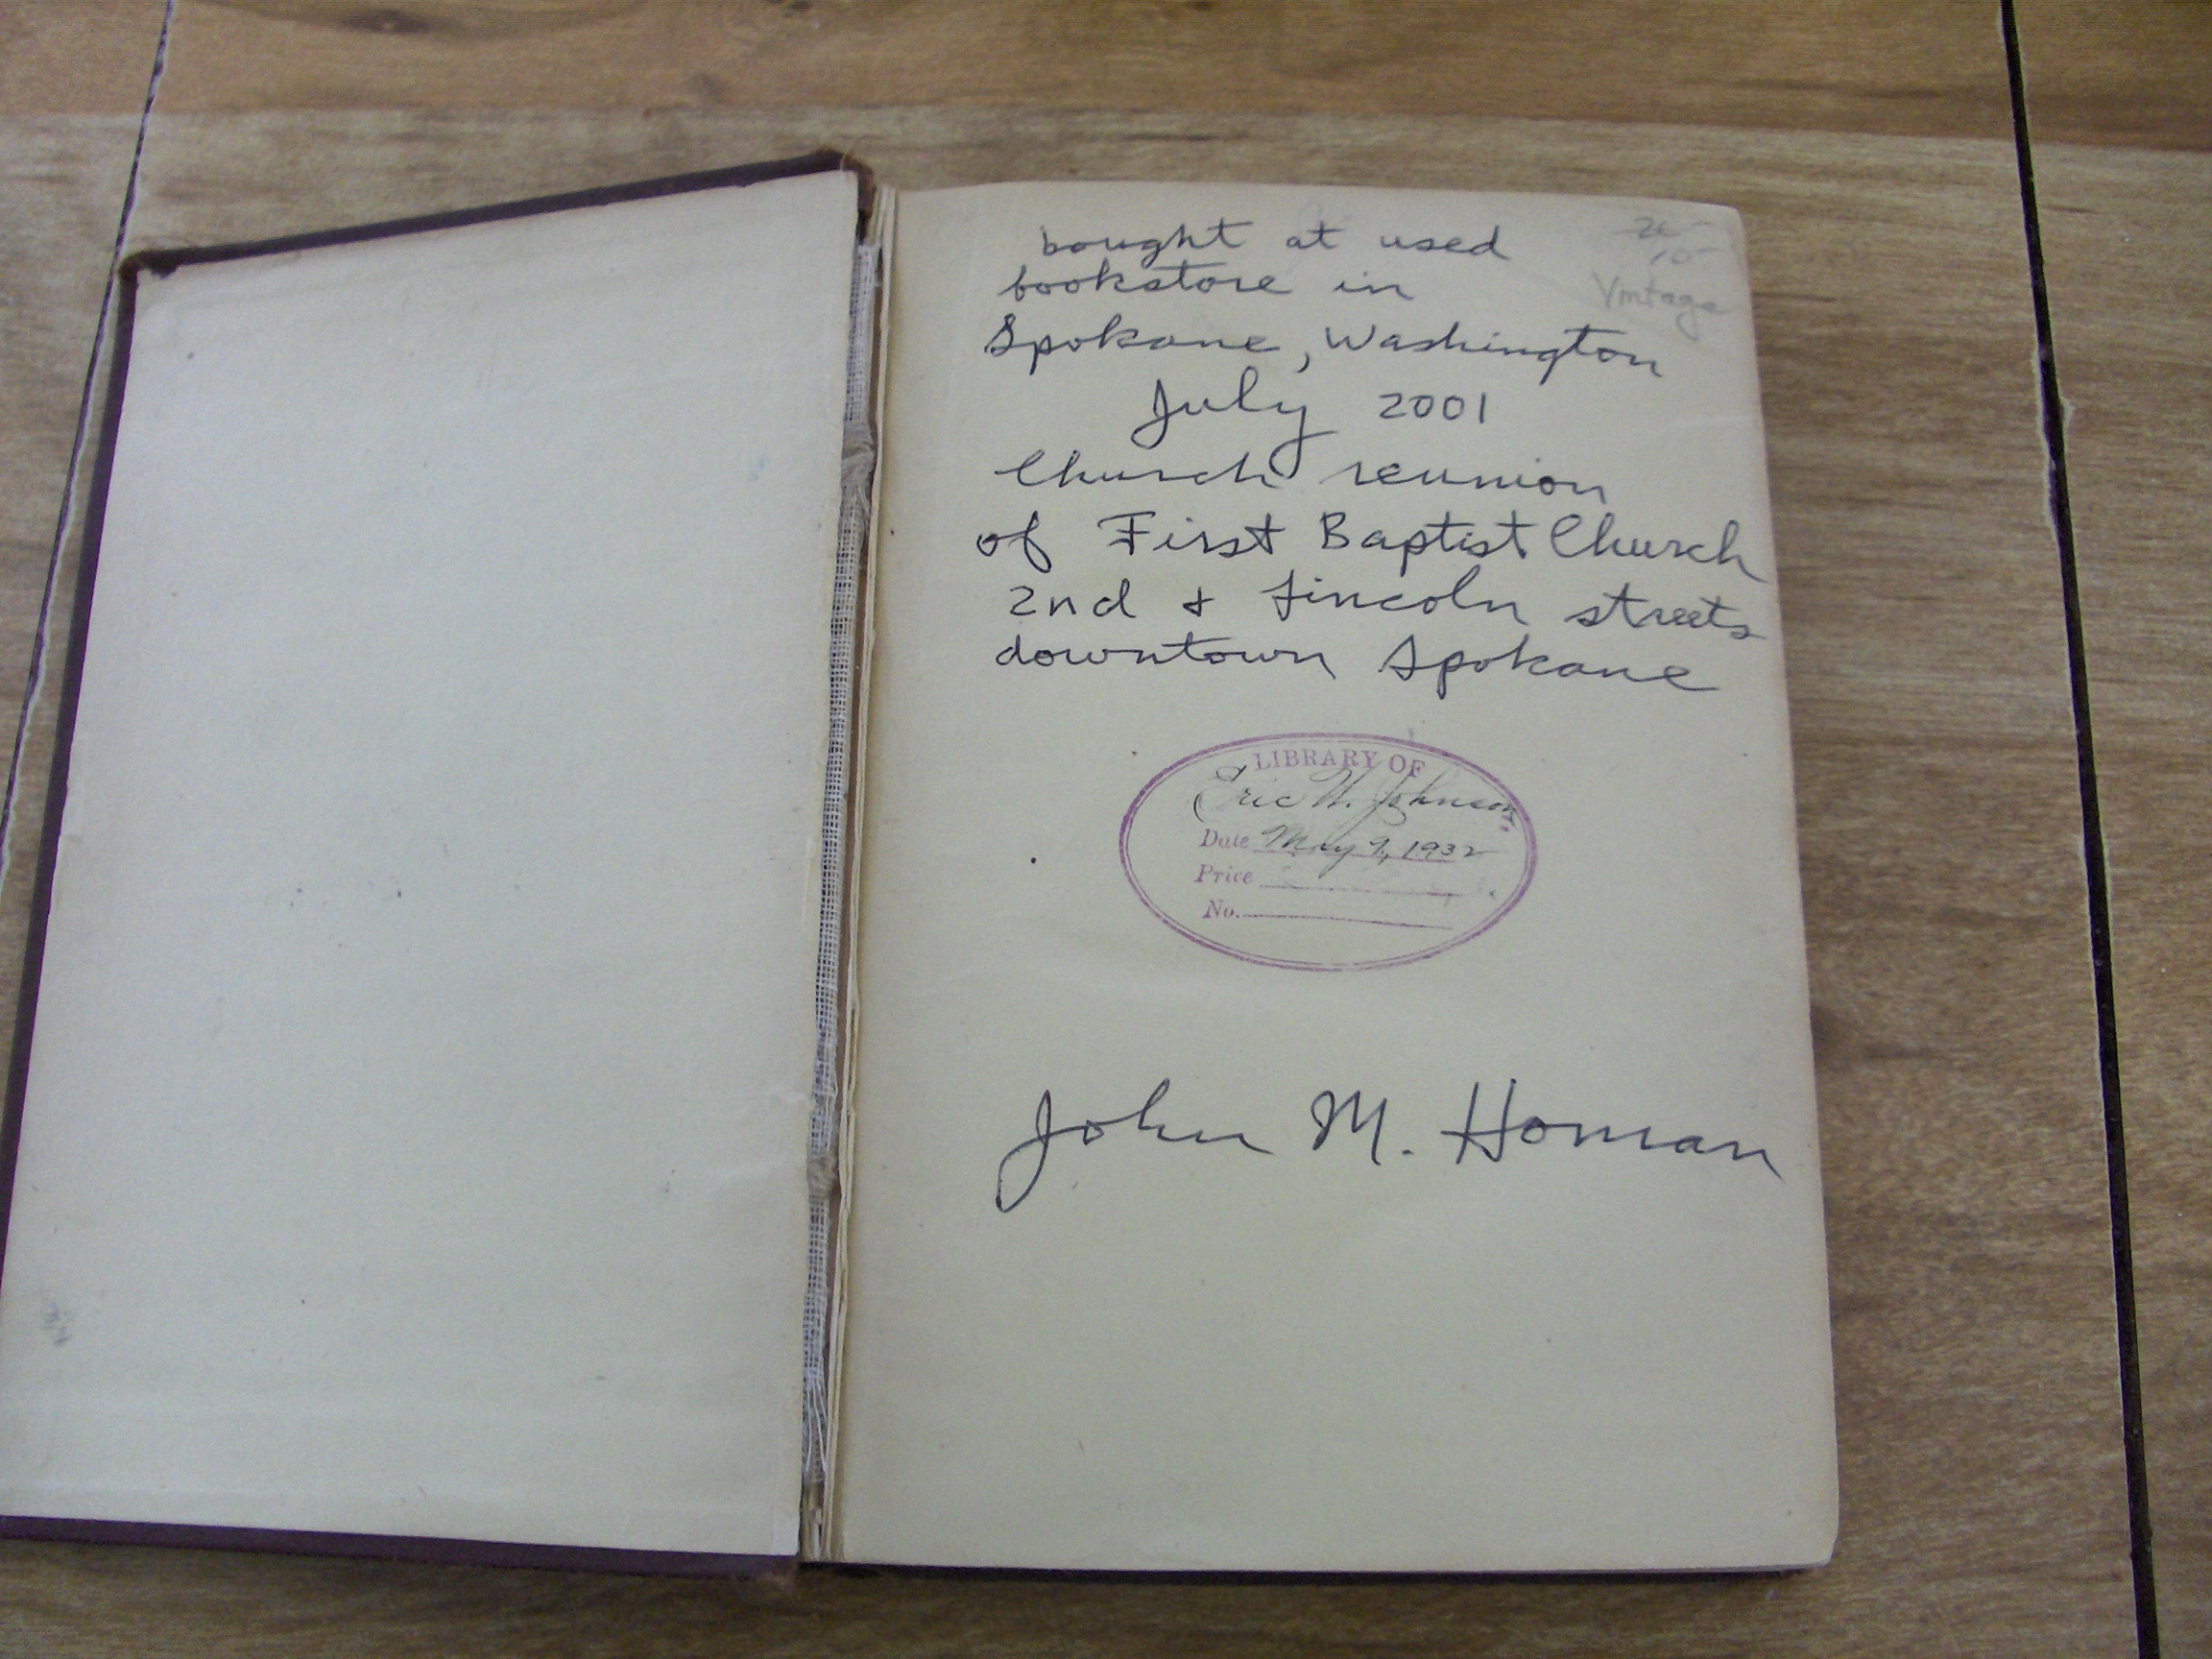 bought at used
bookstore in
Spokane, Washington
July 2001
Church reunion
of First Baptist Church
2nd & Lincoln streets
downtown Spokane
20-
10-
Vintage
LIBRARY OF
Eric H. Johnson
Date May 9, 1932
Price
No.
John M. Homan